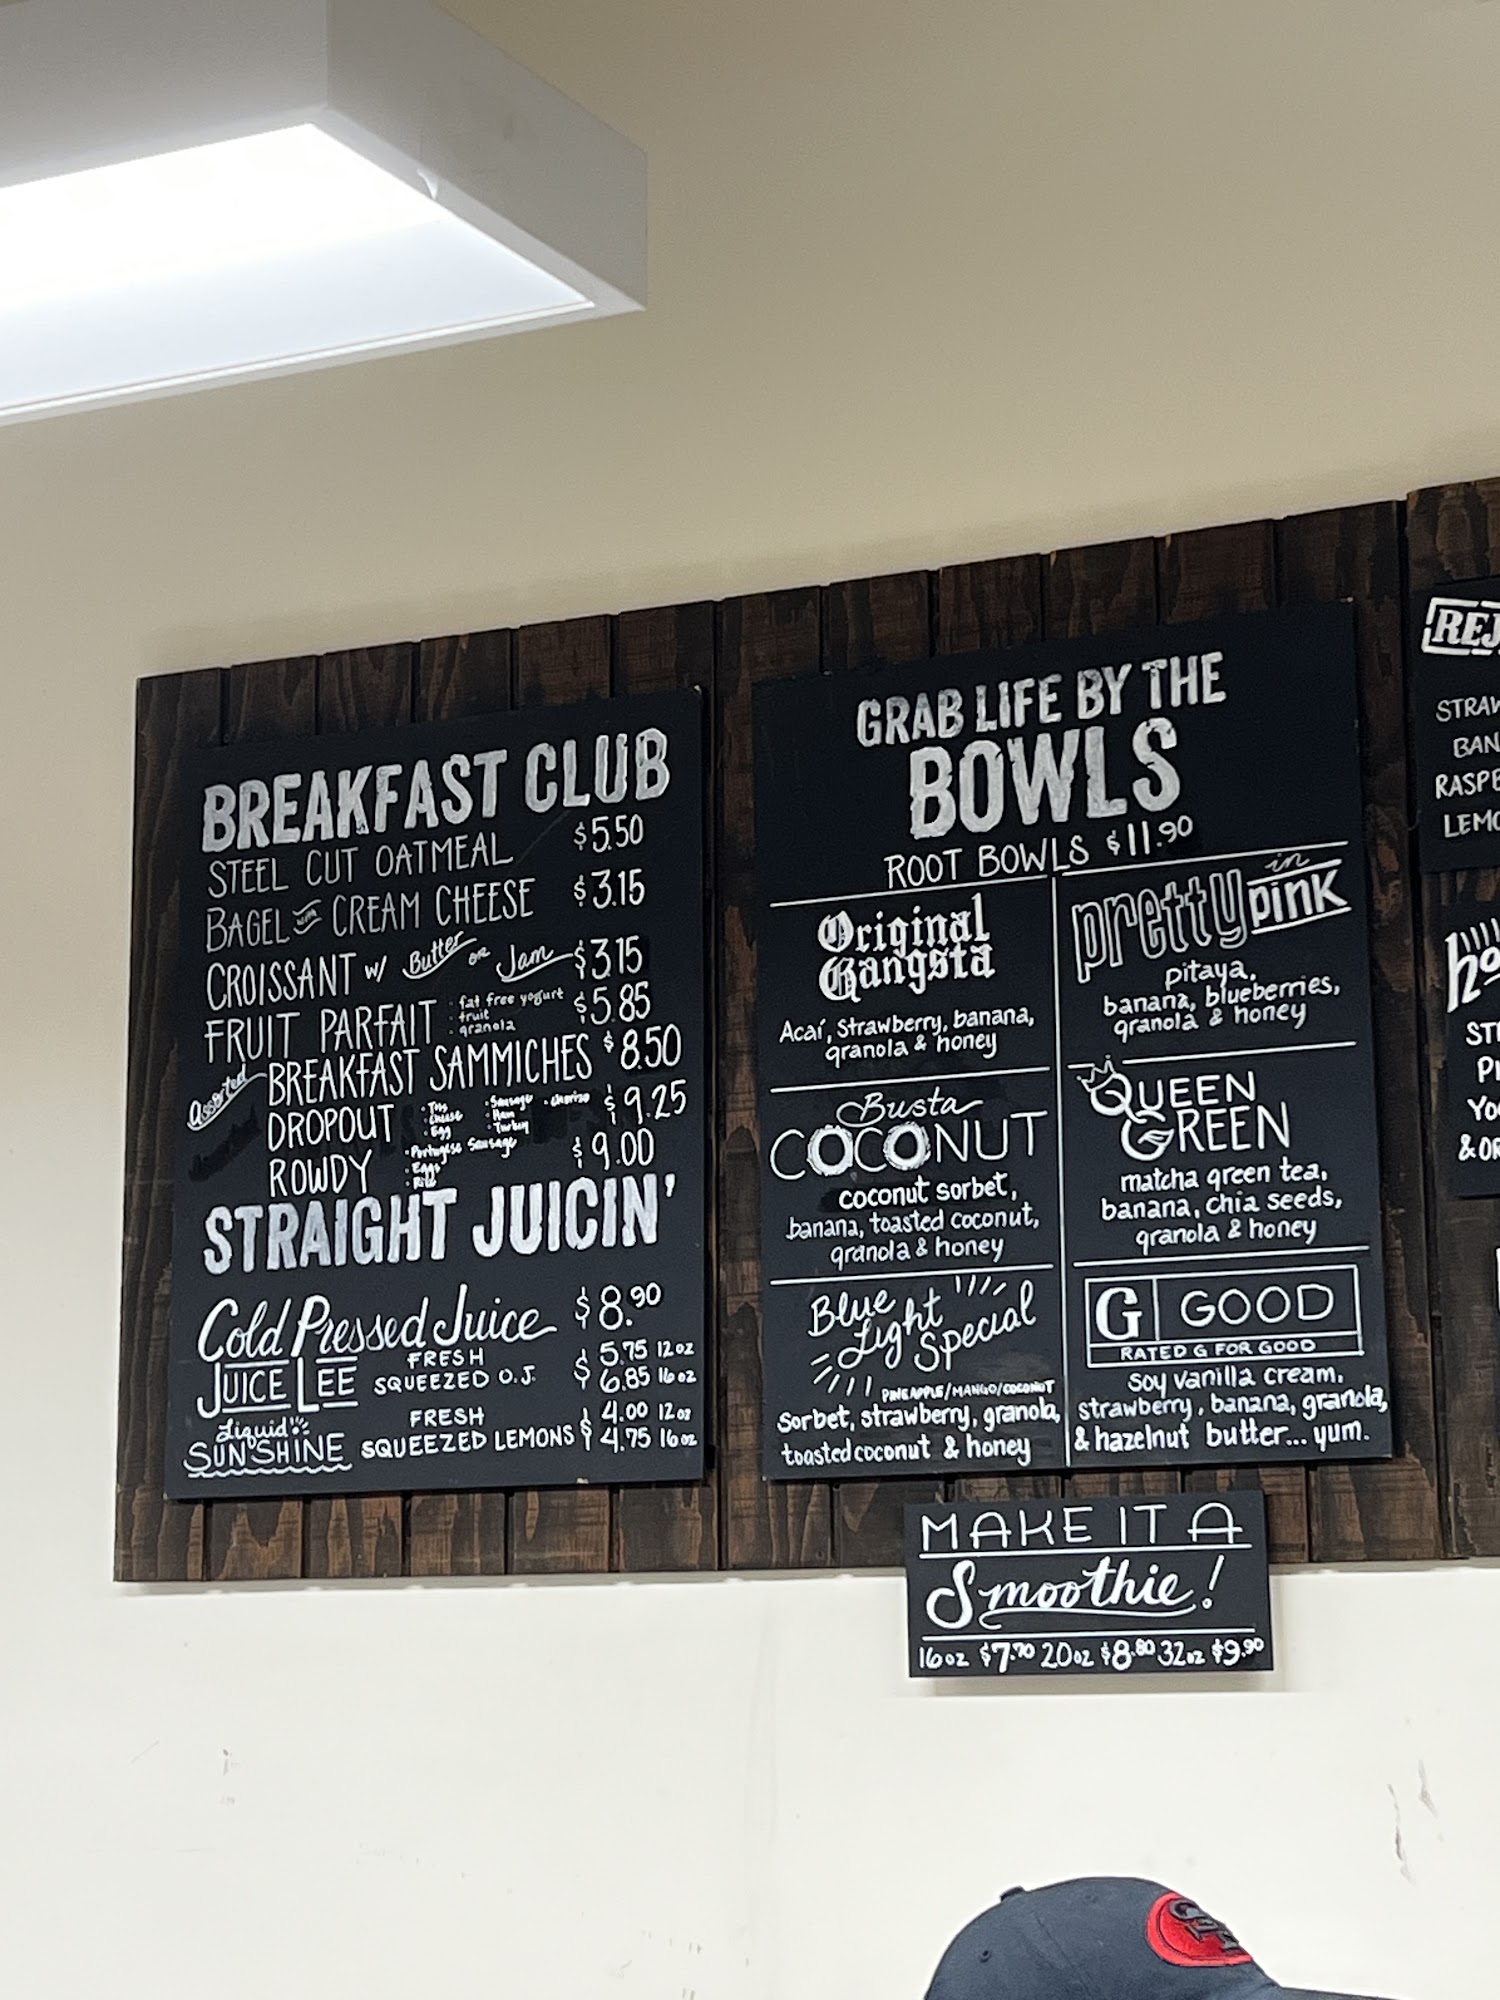 BREAKFAST CLUB
STEEL CUT OATMEAL $5.50
BAGEL with CREAM CHEESE $3.15
CROISSANT w/ Butter or Jam $3.15
FRUIT PARFAIT · fat free yogurt · fruit · granola $5.85
Assorted BREAKFAST SAMMICHES $8.50
DROPOUT · Cheese · Egg · Sausage · Ham · Turkey · chorizo $9.25
ROWDY · Portugese Sausage · Eggs · Rice $9.00
STRAIGHT JUICIN'
Cold Pressed Juice $8.90
JUICE LEE FRESH SQUEEZED O.J. $5.75 12oz
$6.85 16oz
Liquid SUNSHINE FRESH SQUEEZED LEMONS $4.00 12oz
$4.75 16oz
GRAB LIFE BY THE
BOWLS
ROOT BOWLS $11.90
Original
Gangsta
Acaí, strawberry, banana,
granola & honey
pretty in pink
pitaya,
banana, blueberries,
granola & honey
Busta
COCONUT
coconut sorbet,
banana, toasted coconut,
granola & honey
QUEEN
GREEN
matcha green tea,
banana, chia seeds,
granola & honey
Blue
Light
Special
PINEAPPLE/MANGO/COCONUT
Sorbet, strawberry, granola,
toasted coconut & honey
G GOOD
RATED G FOR GOOD
soy vanilla cream,
strawberry, banana, granola,
& hazelnut butter... yum.
MAKE IT A
Smoothie!
16oz $7.70 20oz $8.80 32oz $9.90
REJ
STRAW
BAN
RASPB
LEMO
ho
ST
PI
YO
& OR
SF